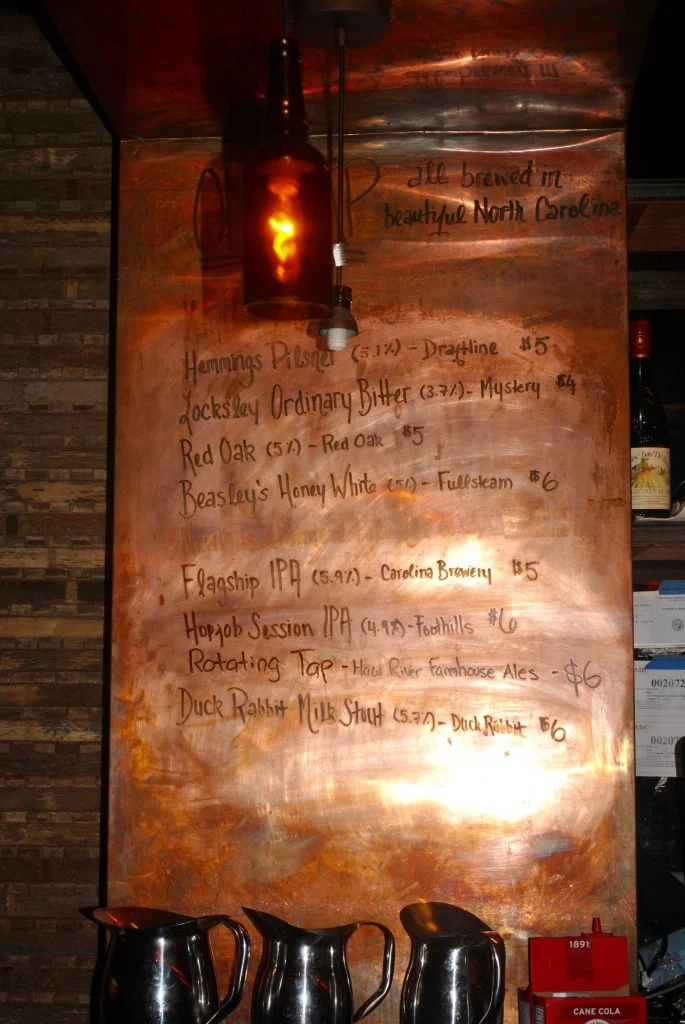 all brewed in
beautiful North Carolina
Hemmings Pilsner (5.1%) - Draftline $5
Locksley Ordinary Bitter (3.7%) - Mystery $4
Red Oak (5%) - Red Oak $5
Beasley's Honey White (5%) - Fullsteam $6
Flagship IPA (5.9%) - Carolina Brewery $5
Hopjob Session IPA (4.9%) - Foothills $6
Rotating Tap - Haw River Farmhouse Ales - $6
Duck Rabbit Milk Stout (5.7%) - Duck Rabbit $6
002072
1891
CANE COLA